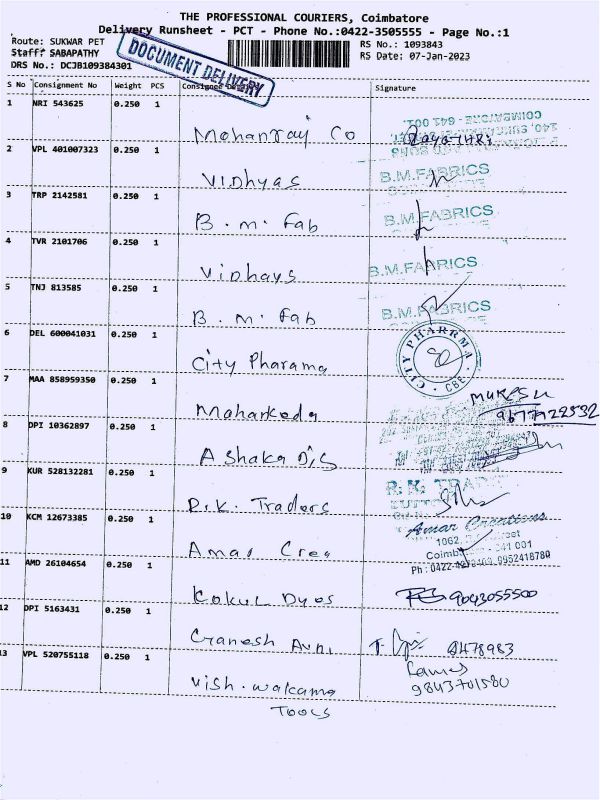 THE PROFESSIONAL COURIERS, Coimbatore
Delivery Runsheet - PCT - Phone No.:0422-3505555 - Page No.:1
Route: SUKWAR PET
RS No.: 1093843
Staff: SABAPATHY
RS Date: 07-Jan-2023
DRS No.: DCJB109384301
DOCUMENT DELIVERY
S No Consignment No Weight PCS Consignee Details Signature
1 NRI 543625 0.250 1
Mohanraj Co
COIMBATORE - 641 001.
2 VPL 401007323 0.250 1
VIDHYAS
B.M.FABRICS
3 TRP 2142581 0.250 1
B.m.Fab
B.M.FABRICS
4 TVR 2101706 0.250 1
VIDHAYS
B.M.FABRICS
5 TNJ 813585 0.250 1
B.m.Fab
B.M.FABRICS
6 DEL 600041031 0.250 1
City Pharama
CITY PHARRMA CBE
7 MAA 858959350 0.250 1
Maharkeda
MUKESH
8 DPI 10362897 0.250 1
Ashaka D/S
9 KUR 528132281 0.250 1
R.K. Traders
R.K. TRAD
10 KCM 12673385 0.250 1
Amar Crea
Amar Creations
1062,
Coimb 641 001
Ph : 0422- 9952418780
11 AMD 26104654 0.250 1
Kokul Dyes
9043055500
12 DPI 5163431 0.250 1
Ganesh Avn.
8478983
13 VPL 520755118 0.250 1
Vish.wakama
TOOLS
Rames
9843701580